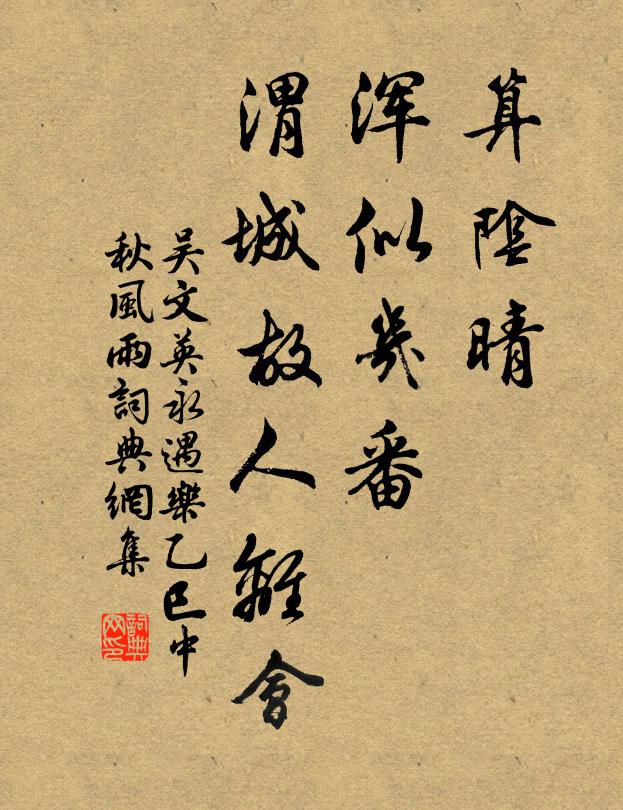 算陰晴
渾似幾番
渭城故人離會
吴文英永遇樂乙巳中
秋風雨詞典網集
詞典
网印